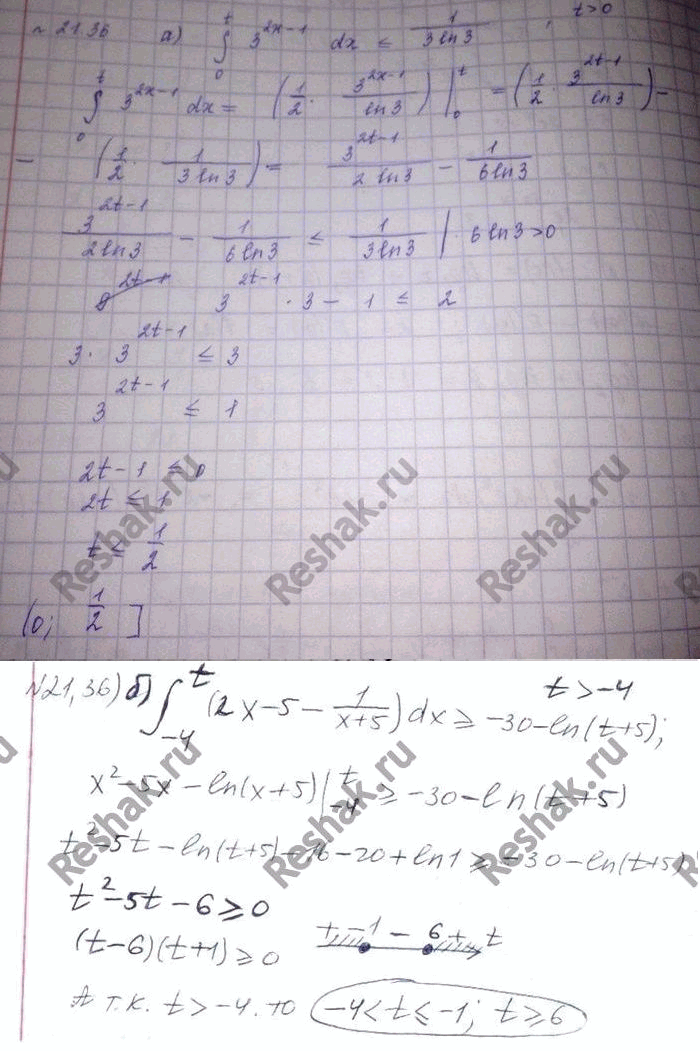 № 21.36 а) ∫₀ᵗ 3^(2x-1) dx ≤ 1/(3 ln 3) , t>0
∫₀ᵗ 3^(2x-1) dx = (1/2 · 3^(2x-1)/ln3) |₀ᵗ = (1/2 · 3^(2t-1)/ln3) −
− (1/2 · 1/(3 ln3)) = 3^(2t-1)/(2 ln3) − 1/(6 ln3)
3^(2t-1)/(2 ln3) − 1/(6 ln3) ≤ 1/(3 ln3) | · 6 ln3 >0
3^(2t-1) · 3 − 1 ≤ 2
3 · 3^(2t-1) ≤ 3
3^(2t-1) ≤ 1
2t − 1 ≤ 0
2t ≤ 1
t ≤ 1/2
(0; 1/2 ]
№21,36) б) ∫₋₄ᵗ (2x−5−1/(x+5)) dx ≥ −30−ln(t+5); t>−4
x²−5x−ln(x+5) |₋₄ᵗ ≥ −30−ln(t+5)
t²−5t−ln(t+5)−16−20+ln1 ≥ −30−ln(t+5)
t²−5t−6≥0
(t−6)(t+1)≥0 + −1 − 6 + t
А т.к. t>−4, то −4<t≤−1; t≥6
Reshak.ru
Reshak.ru
Reshak.ru
Reshak.ru
Reshak.ru
Reshak.ru